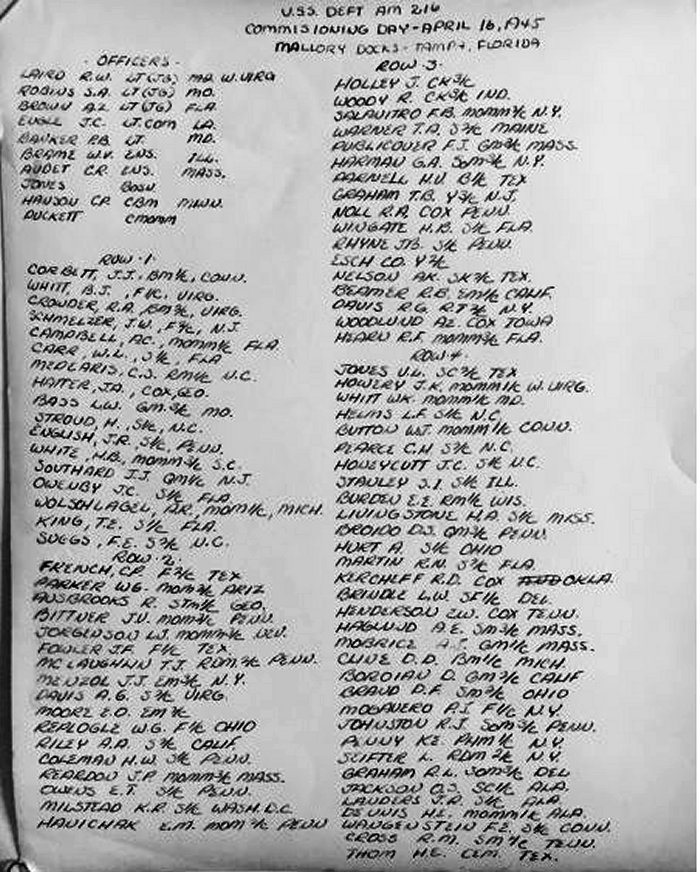 U.S.S. DEFT AM 216
COMMISIONING DAY-APRIL 16, 1945
MALLORY DOCKS - TAMPA, FLORIDA
- OFFICERS -
LAIRD R.W. LT(JG) MD. W.VIRG
ROBINS S.A. LT(JG) MO.
BROWN A.Z. LT(JG) FLA.
EUGLE J.C. LT.COM LA.
BANKER P.B. LT. MD.
BRAME W.V. ENS. ILL.
AUDET C.R. ENS. MASS.
JONES BOSN
HANSON C.P. CBM MINN.
DUCKETT CMOMM
ROW - 1 -
CORBETT, J.J., BM1/c, CONN.
WHITT, B.J., F1/c, VIRG.
CROWDER, R.A., BM2/c, VIRG.
SCHMELZER, J.W., F2/c, N.J.
CAMPBELL, A.C., MOMM1/c FLA.
CARR, W.L., S1/c, FLA
MEDLARIS, C.S. RM1/c N.C.
HAITER, J.A., COX, GEO.
BASS L.W. GM3/c MO.
STROUD, H., S1/c, N.C.
ENGLISH, J.R. S1/c, PENN.
WHITE, H.B., MOMM3/c S.C.
SOUTHARD J.J. QM1/c N.J.
OWENBY J.C. S1/c FLA.
WOLSCHLAGEL, A.R., MOM1/c, MICH.
KING, T.E. S1/c FLA.
SUGGS, F.E. S2/c N.C.
ROW - 2 -
FRENCH, C.P. F2/c TEX
PARKER W.G. MOM3/c ARIZ
AUSBROOKS R. STM1/c GEO.
BITTNER J.V. MOM2/c PENN.
JORGENSON L.J. MOMM3/c NEV.
FOWLER J.F. F1/c TEX.
MCLAUGHLIN T.J. RDM3/c PENN.
MENZOL J.J. EM3/c N.Y.
DAVIS A.G. S2/c VIRG.
MOORE E.O. EM3/c
REPLOGLE W.G. F1/c OHIO
RILEY A.A. S2/c CALIF.
COLEMAN H.W. S1/c PENN.
REARDON J.P. MOMM3/c MASS.
OWENS E.T. S1/c PENN.
MILSTEAD K.R. S1/c WASH. D.C.
HANICHAK E.M. MOM3/c PENN
ROW - 3 -
HOLLEY J. CK3/c
WOODY R. CK3/c IND.
SALAVITRO F.B. MOMM3/c N.Y.
WARNER T.A. S2/c MAINE
PUBLICOVER F.J. GM3/c MASS.
HARMAN G.A. SOM3/c N.Y.
PARNELL H.V. B1/c TEX
GRAHAM T.B. Y3/c N.J.
NOLL R.A. COX PENN.
WINGATE H.B. S1/c FLA.
RHYNE J.B. S1/c PENN.
ESCH CO. Y2/c
NELSON A.K. SK3/c TEX.
BEAMER R.B. EM1/c CALIF.
DAVIS R.G. RT3/c N.Y.
WOODLUND A.Z. COX IOWA
HEARN R.F. MOMM3/c FLA.
ROW - 4 -
JONES V.L. SC3/c TEX
HOWERY J.K. MOMM1/c W.VIRG.
WHITT W.K. MOMM1/c MD.
HELMS L.F. S1/c N.C.
BUTTON W.J. MOMM1/c CONN.
PEARCE C.H. S2/c N.C.
HONEYCUTT J.C. S1/c N.C.
STANLEY S.I. S1/c ILL.
BURDEN E.E. RM1/c WIS.
LIVINGSTONE H.A. S1/c MISS.
BROIDO D.S. QM3/c PENN.
HURT A. S1/c OHIO
MARTIN R.N. S2/c FLA.
KERCHEFF R.D. COX OKLA.
BRINDLE L.W. SF1/c DEL.
HENDERSON Z.W. COX TENN.
HAGLUND A.E. SM3/c MASS.
MOBRICE A.J. GM1/c MASS.
CLINE D.D. BM1/c MICH.
BOROIAN D. GM3/c CALIF
BRAUD D.F. SM3/c OHIO
MOGAVERO P.I. F1/c N.Y.
JOHNSTON R.J. SOM3/c PENN.
PENNY K.E. PHM1/c N.Y.
SCIFTER L. RDM2/c N.Y.
GRAHAM R.L. SOM3/c DEL
JACKSON O.S. SC1/c ALA.
LANDERS J.R. S1/c ALA.
DENNIS H.E. MOMM1/c ALA.
WANGENSTEIN F.E. S1/c CONN.
CROSS R.M. SM1/c TENN.
THOM H.E. CEM. TEX.